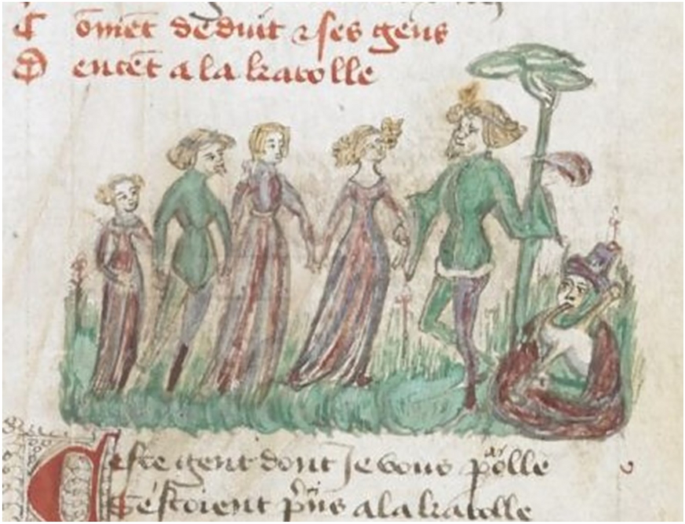 C omēt deduit ⁊ ses gens
D encēt a la karolle
Ceste gent dont Je vous pᵃrolle
Sestoient pⁱns a la karolle